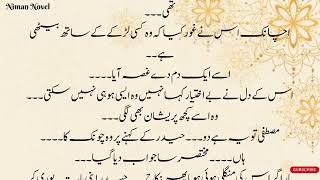 Niman Novel
تھی۔۔۔
اچانک اس نے غور کیا کہ وہ کسی لڑکے کے ساتھ بیٹھی
ہے۔۔
اسے ایک دم دے غصہ آیا۔۔۔۔
اس کے دل نے بے اختیار کہا نہیں وہ ایسی ہو ہی نہیں سکتی۔۔۔۔
وہ اسے کچھ پریشان بھی لگی۔۔۔
مصطفی تو یہ ہے دو۔۔حیدر کے کہنے پر وہ چونک کا۔۔۔۔
ہاں۔۔۔۔ مختصر سا جواب دیا گیا۔۔۔۔
SUBSCRIBE